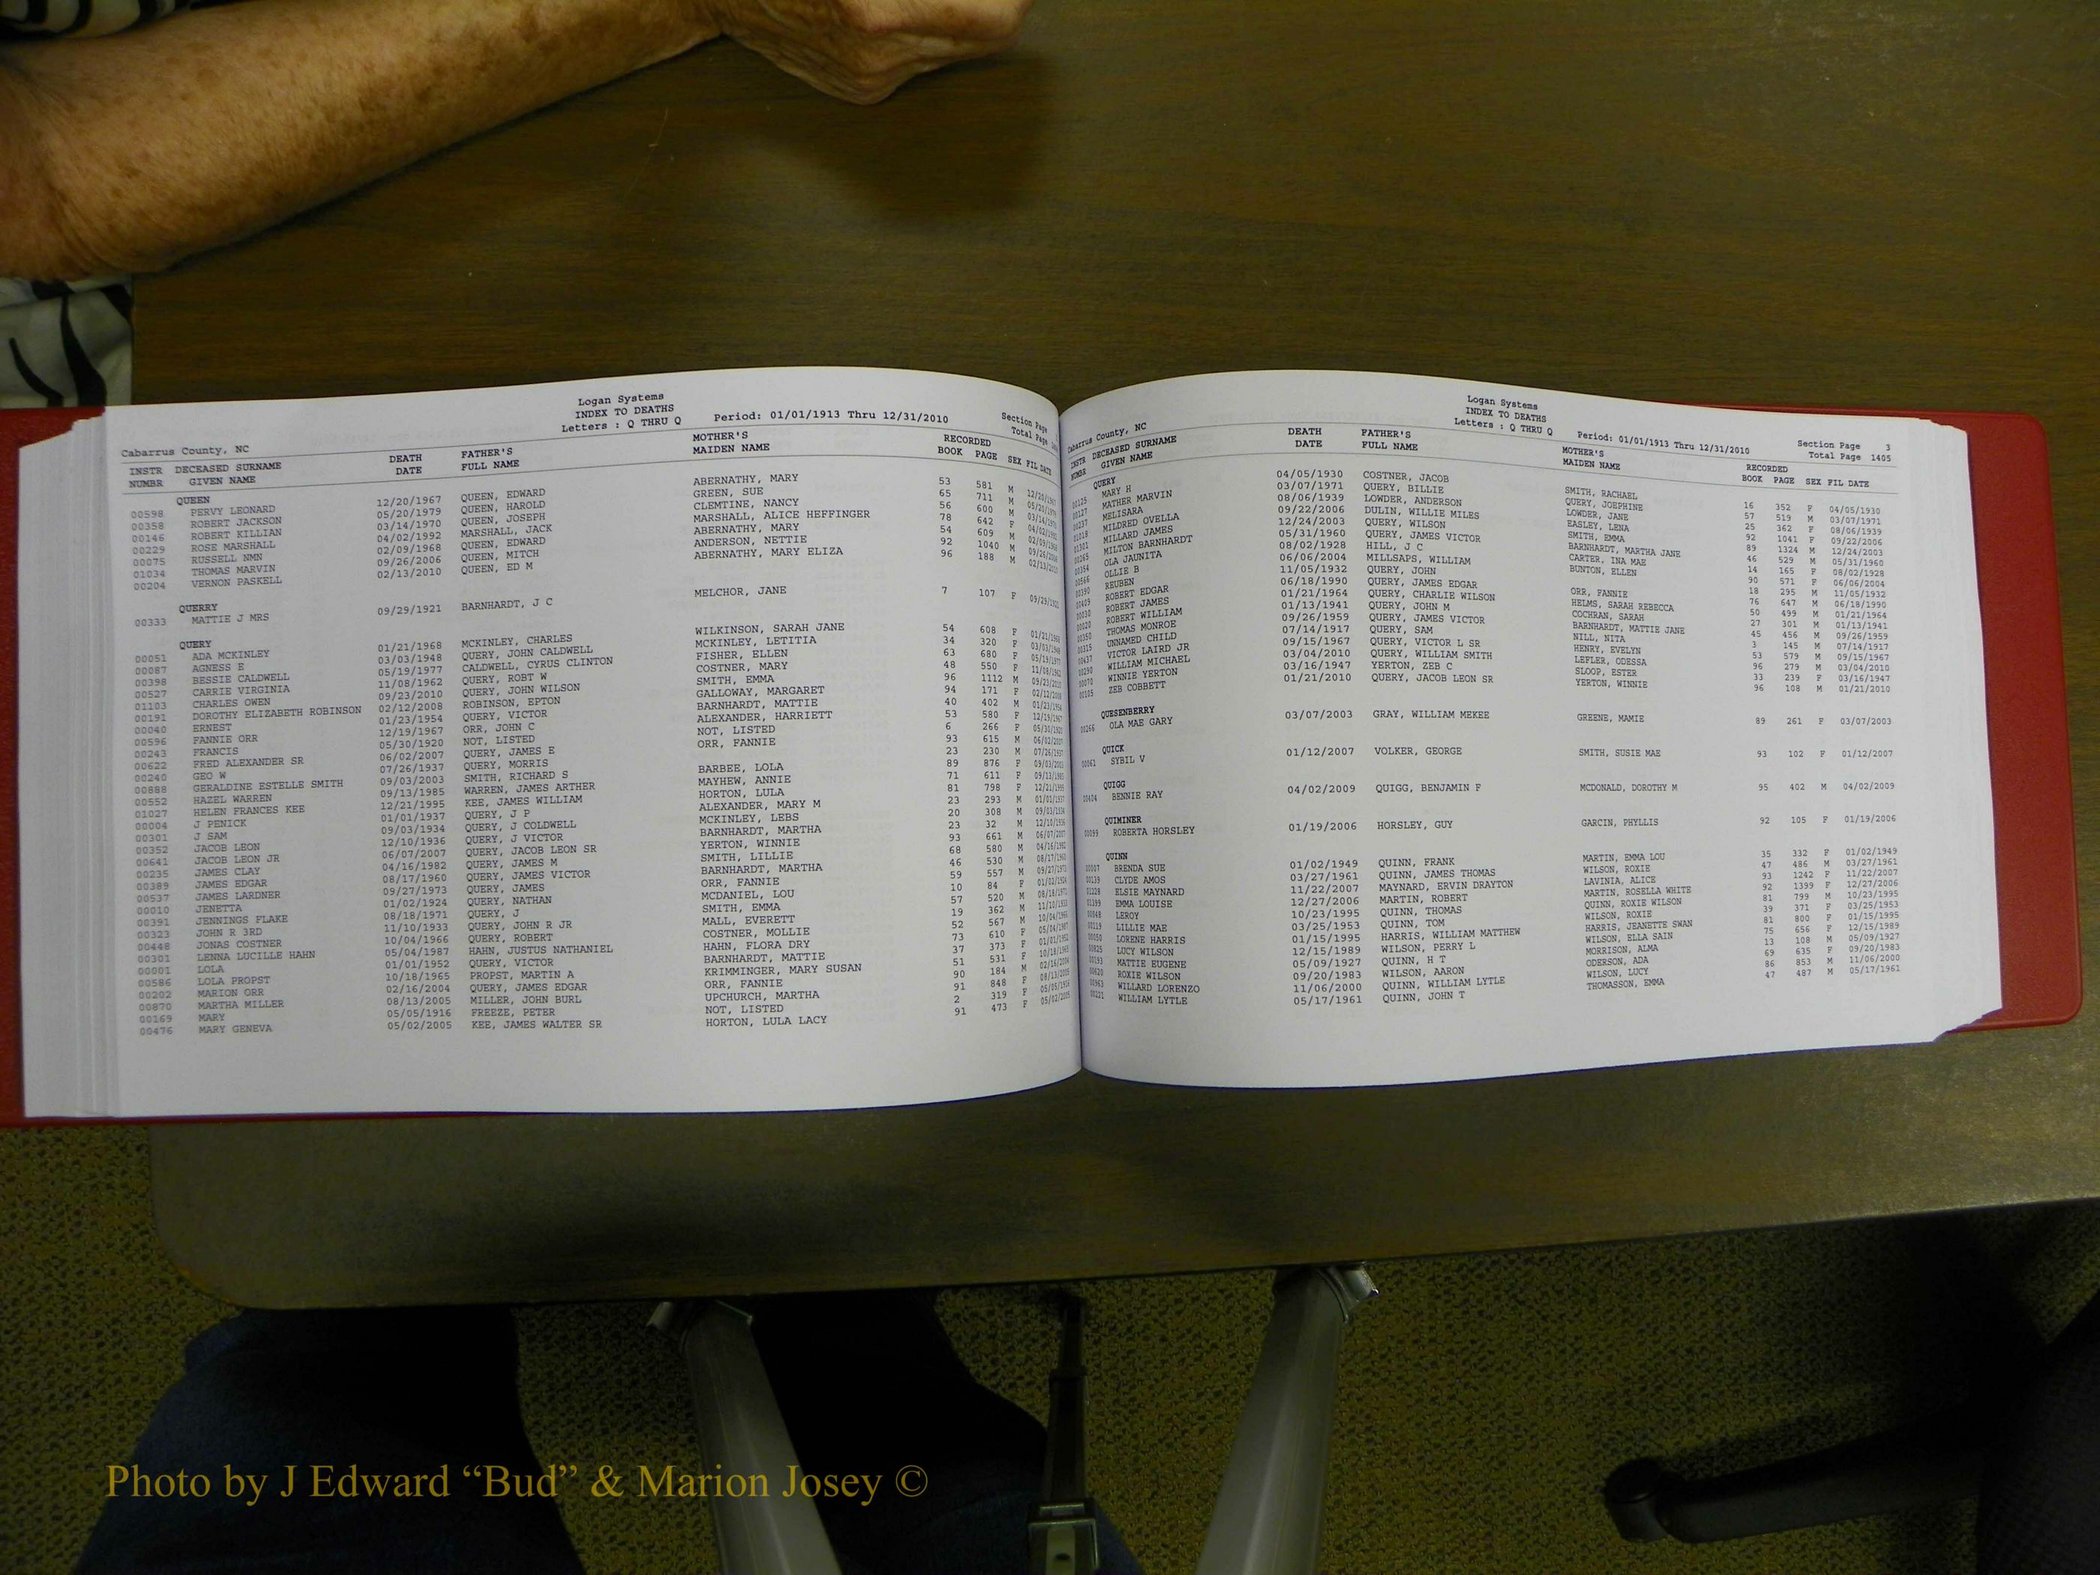 Logan Systems
INDEX TO DEATHS
Letters : Q THRU Q Period: 01/01/1913 Thru 12/31/2010 Section Page
Cabarrus County, NC Total Page
INSTR DECEASED SURNAME DEATH FATHER'S MOTHER'S RECORDED
NUMBR GIVEN NAME DATE FULL NAME MAIDEN NAME BOOK PAGE SEX FIL DATE
QUEEN
00598 PERVY LEONARD 12/20/1967 QUEEN, EDWARD ABERNATHY, MARY 53 581 M
00358 ROBERT JACKSON 05/20/1979 QUEEN, HAROLD GREEN, SUE 65 711 M
00146 ROBERT KILLIAN 03/14/1970 QUEEN, JOSEPH CLEMTINE, NANCY 56 600 M
00229 ROSE MARSHALL 04/02/1992 MARSHALL, JACK MARSHALL, ALICE HEFFINGER 78 642 F
00075 RUSSELL NMN 02/09/1968 QUEEN, EDWARD ABERNATHY, MARY 54 609 M
01034 THOMAS MARVIN 09/26/2006 QUEEN, MITCH ANDERSON, NETTIE 92 1040 M
00204 VERNON PASKELL 02/13/2010 QUEEN, ED M ABERNATHY, MARY ELIZA 96 188 M
QUERRY
00333 MATTIE J MRS 09/29/1921 BARNHARDT, J C MELCHOR, JANE 7 107 F
QUERY
00051 ADA MCKINLEY 01/21/1968 MCKINLEY, CHARLES WILKINSON, SARAH JANE 54 608 F
00087 AGNESS E 03/03/1948 QUERY, JOHN CALDWELL MCKINLEY, LETITIA 34 320 F
00398 BESSIE CALDWELL 05/19/1977 CALDWELL, CYRUS CLINTON FISHER, ELLEN 63 680 F
00527 CARRIE VIRGINIA 11/08/1962 QUERY, ROBT W COSTNER, MARY 48 550 F
01103 CHARLES OWEN 09/23/2010 QUERY, JOHN WILSON SMITH, EMMA 96 1112 M
00191 DOROTHY ELIZABETH ROBINSON 02/12/2008 ROBINSON, EPTON GALLOWAY, MARGARET 94 171 F
00040 ERNEST 01/23/1954 QUERY, VICTOR BARNHARDT, MATTIE 40 402 M
00596 FANNIE ORR 12/19/1967 ORR, JOHN C ALEXANDER, HARRIETT 53 580 F
00243 FRANCIS 05/30/1920 NOT, LISTED NOT, LISTED 6 266 F
00622 FRED ALEXANDER SR 06/02/2007 QUERY, JAMES E ORR, FANNIE 93 615 M
00240 GEO W 07/26/1937 QUERY, MORRIS 23 230 M
00888 GERALDINE ESTELLE SMITH 09/03/2003 SMITH, RICHARD S BARBEE, LOLA 89 876 F
00552 HAZEL WARREN 09/13/1985 WARREN, JAMES ARTHER MAYHEW, ANNIE 71 611 F
01027 HELEN FRANCES KEE 12/21/1995 KEE, JAMES WILLIAM HORTON, LULA 81 798 F
00004 J PENICK 01/01/1937 QUERY, J P ALEXANDER, MARY M 23 293 M
00301 J SAM 09/03/1934 QUERY, J COLDWELL MCKINLEY, LEBS 20 308 M
00352 JACOB LEON 12/10/1936 QUERY, J VICTOR BARNHARDT, MARTHA 23 32 M
00641 JACOB LEON JR 06/07/2007 QUERY, JACOB LEON SR YERTON, WINNIE 93 661 M
00235 JAMES CLAY 04/16/1982 QUERY, JAMES M SMITH, LILLIE 68 580 M
00389 JAMES EDGAR 08/17/1960 QUERY, JAMES VICTOR BARNHARDT, MARTHA 46 530 M
00537 JAMES LARDNER 09/27/1973 QUERY, JAMES ORR, FANNIE 59 557 M
00010 JENETTA 01/02/1924 QUERY, NATHAN MCDANIEL, LOU 10 84 F
00391 JENNINGS FLAKE 08/18/1971 QUERY, J SMITH, EMMA 57 520 M
00323 JOHN R 3RD 11/10/1933 QUERY, JOHN R JR MALL, EVERETT 19 362 M
00448 JONAS COSTNER 10/04/1966 QUERY, ROBERT COSTNER, MOLLIE 52 567 M
00301 LENNA LUCILLE HAHN 05/04/1987 HAHN, JUSTUS NATHANIEL HAHN, FLORA DRY 73 610 F
00001 LOLA 01/01/1952 QUERY, VICTOR BARNHARDT, MATTIE 37 373 F
00586 LOLA PROPST 10/18/1965 PROPST, MARTIN A KRIMMINGER, MARY SUSAN 51 531 F
00202 MARION ORR 02/16/2004 QUERY, JAMES EDGAR ORR, FANNIE 90 184 M
00870 MARTHA MILLER 08/13/2005 MILLER, JOHN BURL UPCHURCH, MARTHA 91 848 F
00169 MARY 05/05/1916 FREEZE, PETER NOT, LISTED 2 319 F
00476 MARY GENEVA 05/02/2005 KEE, JAMES WALTER SR HORTON, LULA LACY 91 473 F
Logan Systems
INDEX TO DEATHS
Letters : Q THRU Q Period: 01/01/1913 Thru 12/31/2010 Section Page 3
Cabarrus County, NC Total Page 1405
INSTR DECEASED SURNAME DEATH FATHER'S MOTHER'S RECORDED
NUMBR GIVEN NAME DATE FULL NAME MAIDEN NAME BOOK PAGE SEX FIL DATE
QUERY
00125 MARY H 04/05/1930 COSTNER, JACOB SMITH, RACHAEL 16 352 F 04/05/1930
00127 MATHER MARVIN 03/07/1971 QUERY, BILLIE QUERY, JOEPHINE 57 519 M 03/07/1971
00237 MELISARA 08/06/1939 LOWDER, ANDERSON LOWDER, JANE 25 362 F 08/06/1939
MILDRED OVELLA 09/22/2006 DULIN, WILLIE MILES EASLEY, LENA 92 1041 F 09/22/2006
01301 MILLARD JAMES 12/24/2003 QUERY, WILSON SMITH, EMMA 89 1324 M 12/24/2003
00265 MILTON BARNHARDT 05/31/1960 QUERY, JAMES VICTOR BARNHARDT, MARTHA JANE 46 529 M 05/31/1960
00354 OLA JAUNITA 08/02/1928 HILL, J C CARTER, INA MAE 14 165 F 08/02/1928
00566 OLLIE B 06/06/2004 MILLSAPS, WILLIAM BUNTON, ELLEN 90 571 F 06/06/2004
00390 REUBEN 11/05/1932 QUERY, JOHN 18 295 M 11/05/1932
00409 ROBERT EDGAR 06/18/1990 QUERY, JAMES EDGAR ORR, FANNIE 76 647 M 06/18/1990
00030 ROBERT JAMES 01/21/1964 QUERY, CHARLIE WILSON HELMS, SARAH REBECCA 50 499 M 01/21/1964
00020 ROBERT WILLIAM 01/13/1941 QUERY, JOHN M COCHRAN, SARAH 27 301 M 01/13/1941
00350 THOMAS MONROE 09/26/1959 QUERY, JAMES VICTOR BARNHARDT, MATTIE JANE 45 456 M 09/26/1959
00315 UNNAMED CHILD 07/14/1917 QUERY, SAM NILL, NITA 3 145 M 07/14/1917
00437 VICTOR LAIRD JR 09/15/1967 QUERY, VICTOR L SR HENRY, EVELYN 53 579 M 09/15/1967
00290 WILLIAM MICHAEL 03/04/2010 QUERY, WILLIAM SMITH LEFLER, ODESSA 96 279 M 03/04/2010
00070 WINNIE YERTON 03/16/1947 YERTON, ZEB C SLOOP, ESTER 33 239 F 03/16/1947
00105 ZEB COBBETT 01/21/2010 QUERY, JACOB LEON SR YERTON, WINNIE 96 108 M 01/21/2010
QUESENBERRY
00266 OLA MAE GARY 03/07/2003 GRAY, WILLIAM MEKEE GREENE, MAMIE 89 261 F 03/07/2003
QUICK
00061 SYBIL V 01/12/2007 VOLKER, GEORGE SMITH, SUSIE MAE 93 102 F 01/12/2007
QUIGG
00404 BENNIE RAY 04/02/2009 QUIGG, BENJAMIN F MCDONALD, DOROTHY M 95 402 M 04/02/2009
QUIMINER
00099 ROBERTA HORSLEY 01/19/2006 HORSLEY, GUY GARCIN, PHYLLIS 92 105 F 01/19/2006
QUINN
00007 BRENDA SUE 01/02/1949 QUINN, FRANK MARTIN, EMMA LOU 35 332 F 01/02/1949
00139 CLYDE AMOS 03/27/1961 QUINN, JAMES THOMAS WILSON, ROXIE 47 486 M 03/27/1961
01228 ELSIE MAYNARD 11/22/2007 MAYNARD, ERVIN DRAYTON LAVINIA, ALICE 93 1242 F 11/22/2007
01399 EMMA LOUISE 12/27/2006 MARTIN, ROBERT MARTIN, ROSELLA WHITE 92 1399 F 12/27/2006
00848 LEROY 10/23/1995 QUINN, THOMAS QUINN, ROXIE WILSON 81 799 M 10/23/1995
00119 LILLIE MAE 03/25/1953 QUINN, TOM WILSON, ROXIE 39 371 F 03/25/1953
00050 LORENE HARRIS 01/15/1995 HARRIS, WILLIAM MATTHEW HARRIS, JEANETTE SWAN 81 800 F 01/15/1995
00825 LUCY WILSON 12/15/1989 WILSON, PERRY L WILSON, ELLA SAIN 75 656 F 12/15/1989
00193 MATTIE EUGENE 05/09/1927 QUINN, H T MORRISON, ALMA 13 108 M 05/09/1927
00620 ROXIE WILSON 09/20/1983 WILSON, AARON ODERSON, ADA 69 635 F 09/20/1983
00963 WILLARD LORENZO 11/06/2000 QUINN, WILLIAM LYTLE WILSON, LUCY 86 853 M 11/06/2000
00221 WILLIAM LYTLE 05/17/1961 QUINN, JOHN T THOMASSON, EMMA 47 487 M 05/17/1961
Photo by J Edward “Bud” & Marion Josey ©